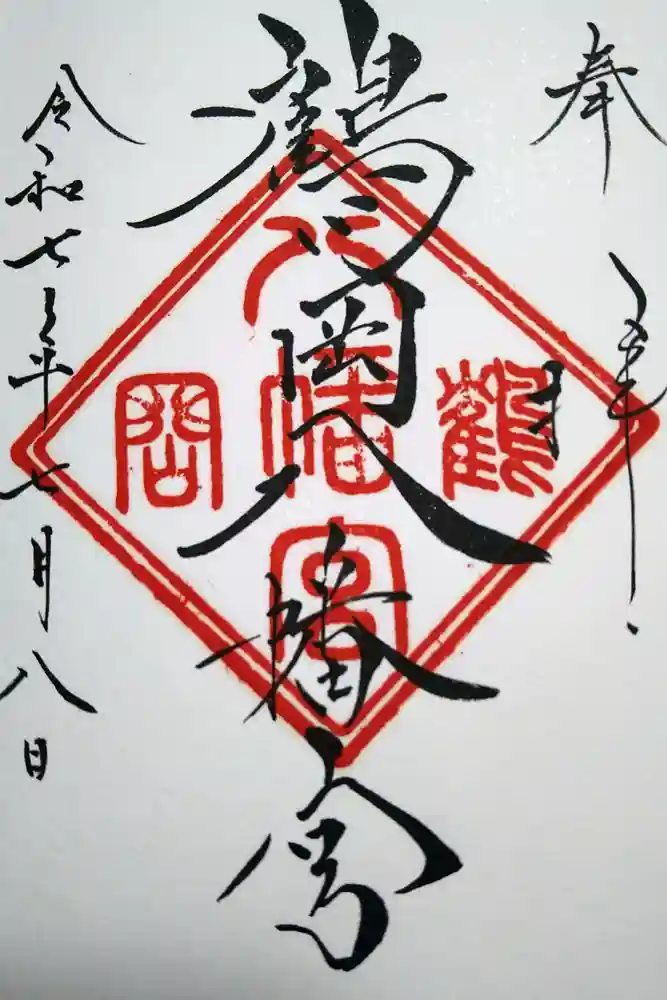 奉拝
鶴岡八幡宮
令和七年七月八日
鶴岡八幡宮